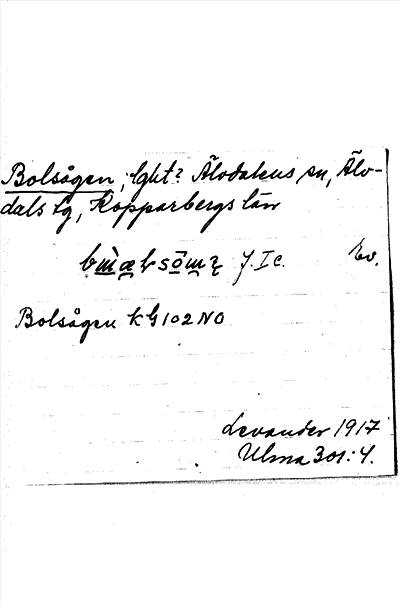 Bolsågen, lght? Älvdalens sn, Älv-
dals tg, Kopparbergs län
f. I c. Ev.
Bolsågen k G 102 NO
Levander 1917
Ulma 301:4.